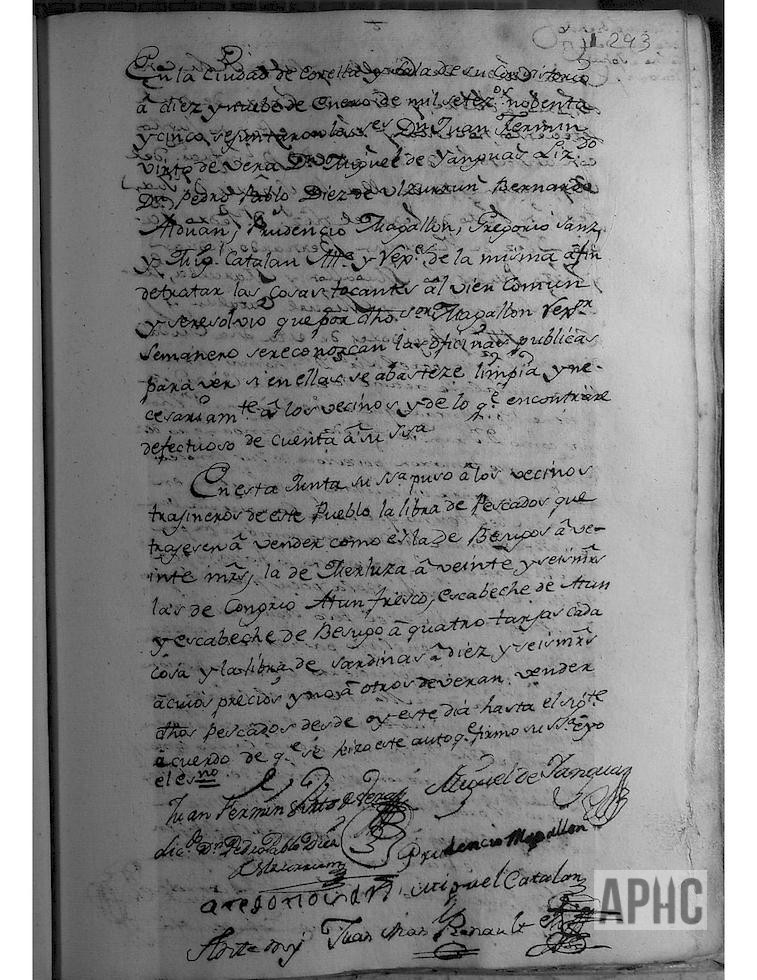 293
En la Ciudad de Corella y Sala de su Consistorio
â diez y nuebe de Enero de mil setezos nobenta
y cinco, se juntaron los ses Dn Juan Fermin
Virto de Vera Dn Miguel de Yanguas Lizdo
Dn Pedro Pablo Diez de Ulzurrun Bernardo
Aduan, Prudencio Magallon, Gregorio Sanz,
y Migl Catalan Alle y Rexs de la misma âfin
detratar las Cosas tocantes âl vien Comun
y seresolvio que por dho ser Magallon Rexor
Semanero sereconozcan las oficinas publicas
para ver si en ellas se abasteze limpia, y ne-
cesariamte â los vecinos y de lo qe encontrare
defectuoso de cuenta â su Ssa
En esta Junta su Ssa puso â los vecinos
trajineros de este Pueblo la libra de Pescados que
trajesen â vender como es la de Besugos â ve-
inte mrs, la de Merluza â veinte y seis mrs
las de Congrio Atun fresco, escabeche de Atun
y escabeche de Besugo â quatro tarjas cada
cosa y la libra de sardinas â diez y seis mrs
âcuios precios, y no â otros deveran vender
dhos Pescados desde oy este dia hasta el sigte
acuerdo de qe se hizo este auto qe firmo su Ssa e yo
el esno
Juan Fermin Virto de Vera Miguel de Yanguas
Licdo Dn Pedro Pablo Diez Prudencio Magallon
de Ulzurrun
Miguel Catalan
Ante mi Juan Man Renault
APHC